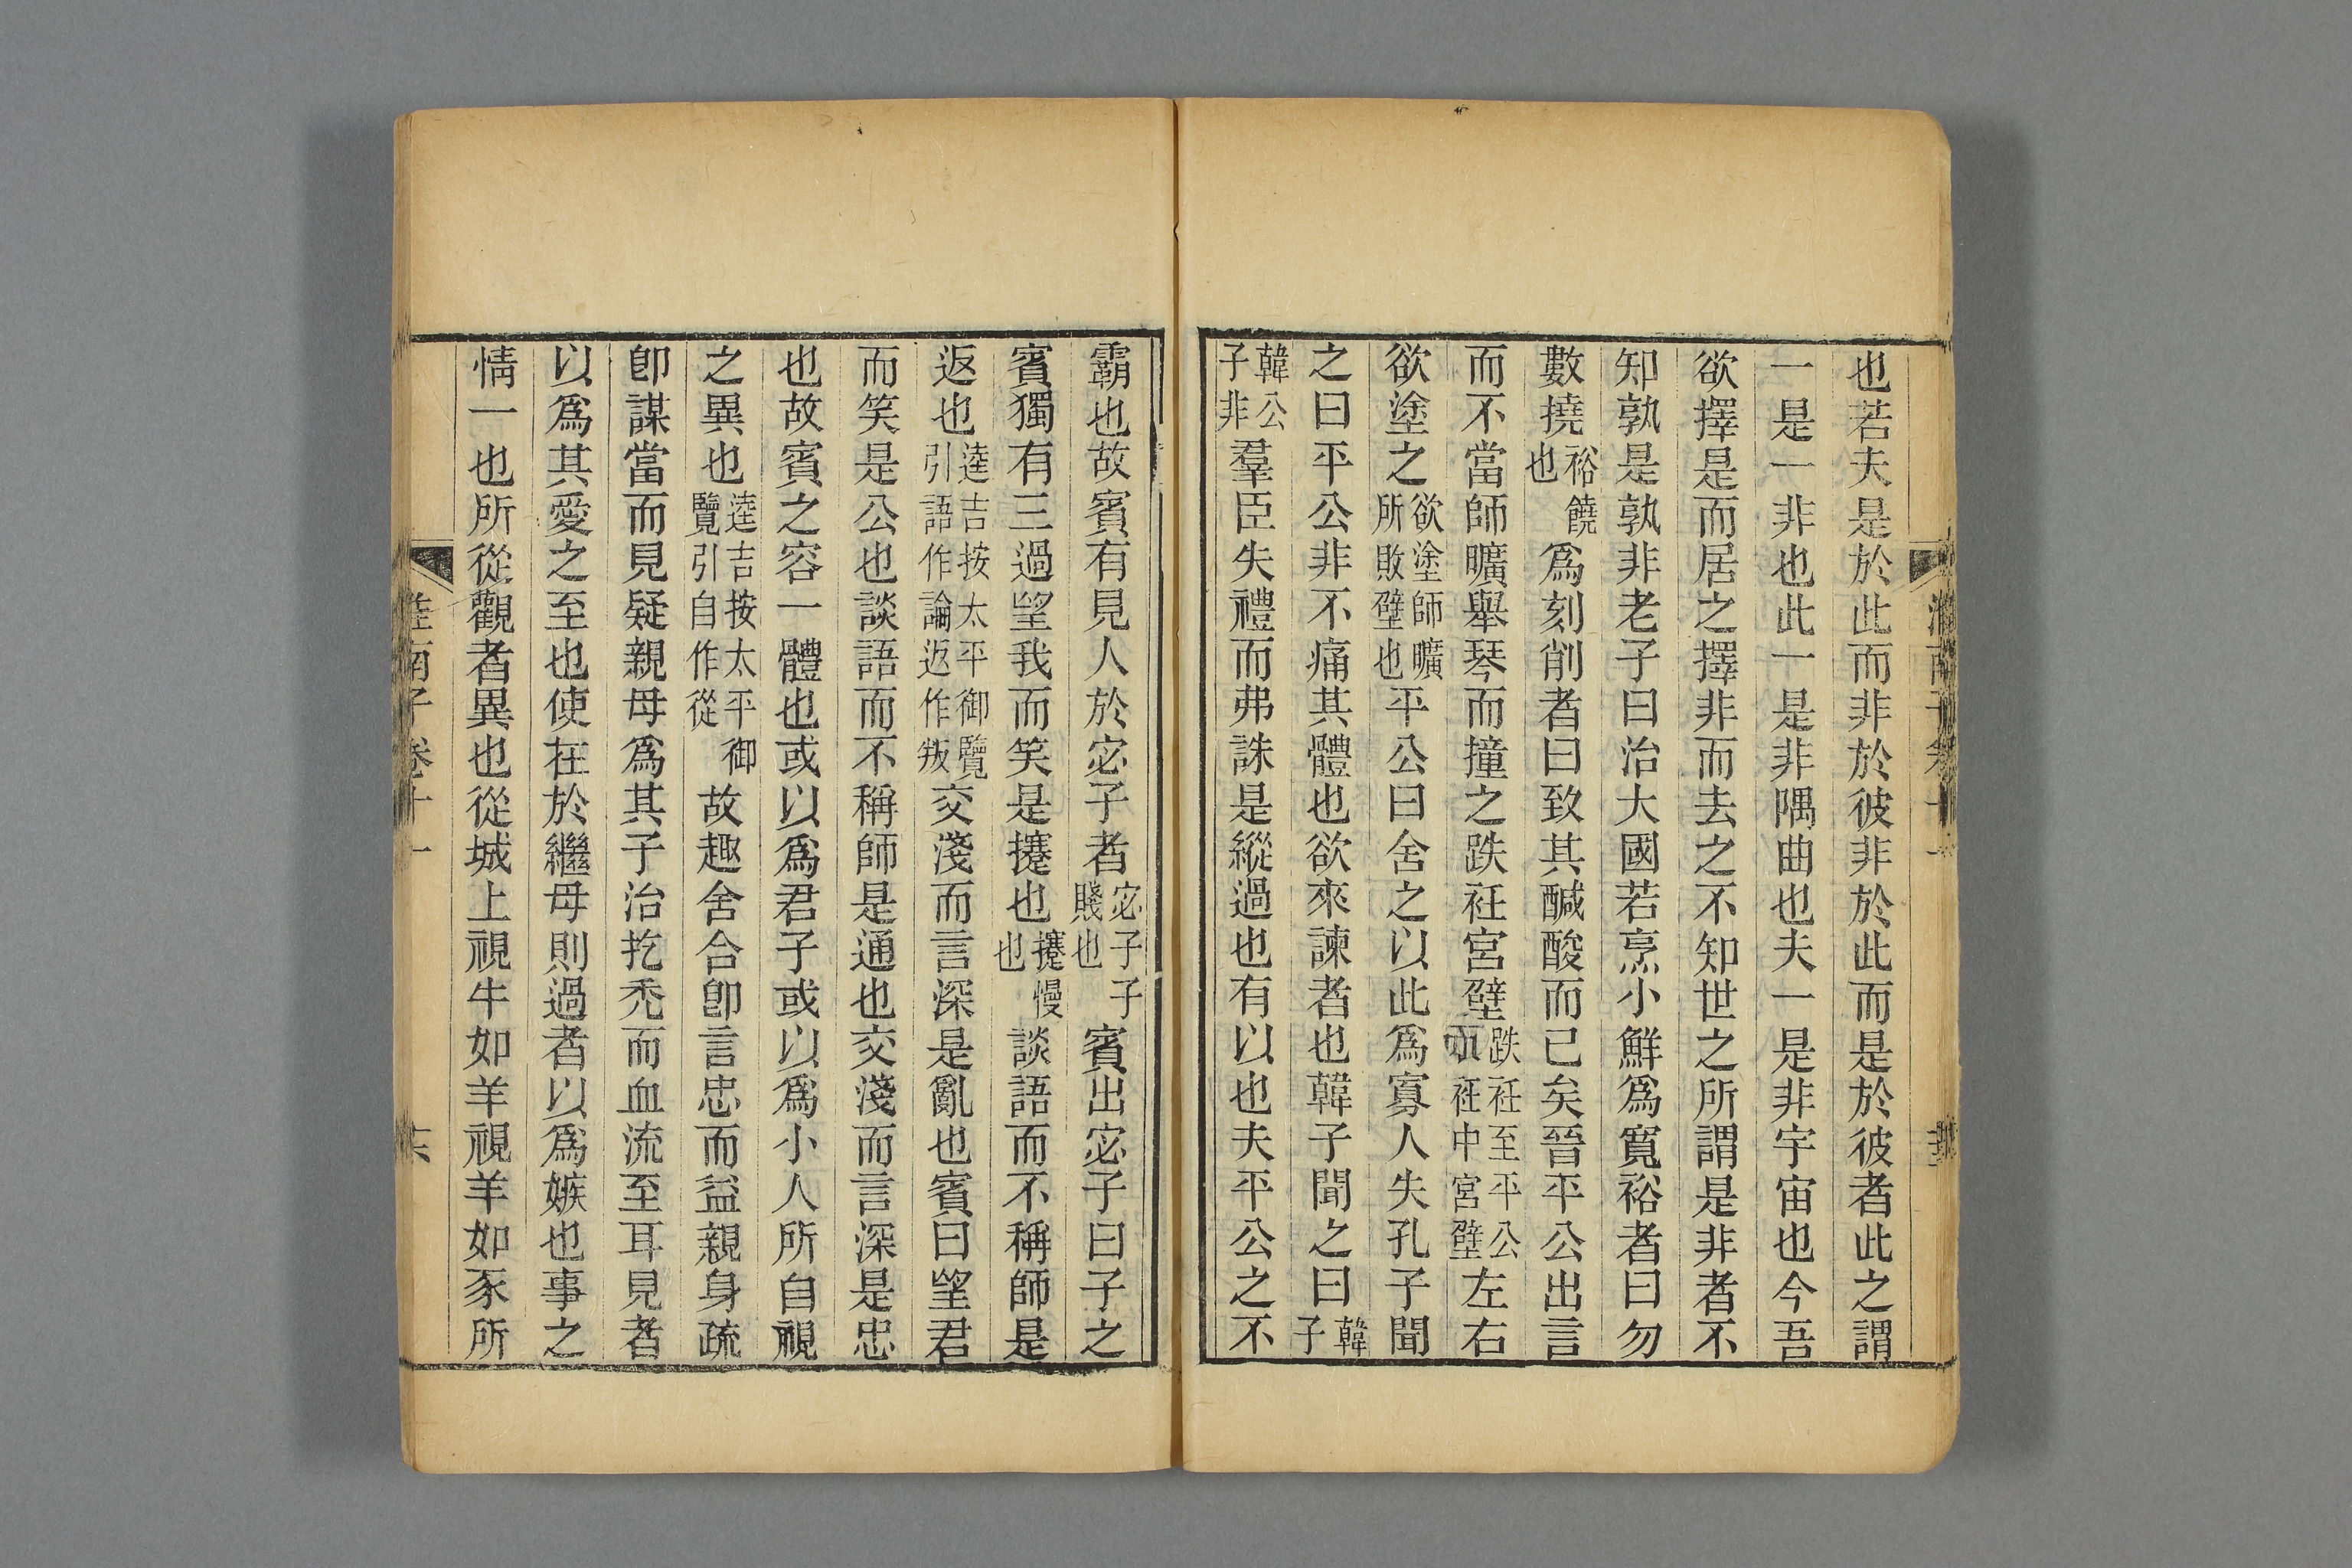 也若夫是於此而非於彼非於此而是於彼者此之謂
一是一非也此一是非隅曲也夫一是非宇宙也今吾
欲擇是而居之擇非而去之不知世之所謂是非者不
知孰是孰非老子曰治大國若烹小鮮爲寬裕者曰勿
數撓裕饒也爲刻削者曰致其醎酸而已矣晉平公出言
而不當師曠舉琴而撞之跌衽宮壁跌衽至平公衣衽中宮壁左右
欲塗之欲塗師曠所敗壁也平公曰舍之以此爲寡人失孔子聞
之曰平公非不痛其體也欲來諫者也韓子聞之曰韓子
韓公子非羣臣失禮而弗誅是縱過也有以也夫平公之不
霸也故賓有見人於宓子者宓子子賤也賓出宓子曰子之
賓獨有三過望我而笑是攓也攓慢也談語而不稱師是
返也逵吉按太平御覽引語作論返作叛交淺而言深是亂也賓曰望君
而笑是公也談語而不稱師是通也交淺而言深是忠
也故賓之容一體也或以爲君子或以爲小人所自視
之異也逵吉按太平御覽引自作從故趣舍合卽言忠而益親身疏
卽謀當而見疑親母爲其子治扢禿而血流至耳見者
以爲其愛之至也使在於繼母則過者以爲嫉也事之
情一也所從觀者異也從城上視牛如羊視羊如豕所
淮南子卷十一